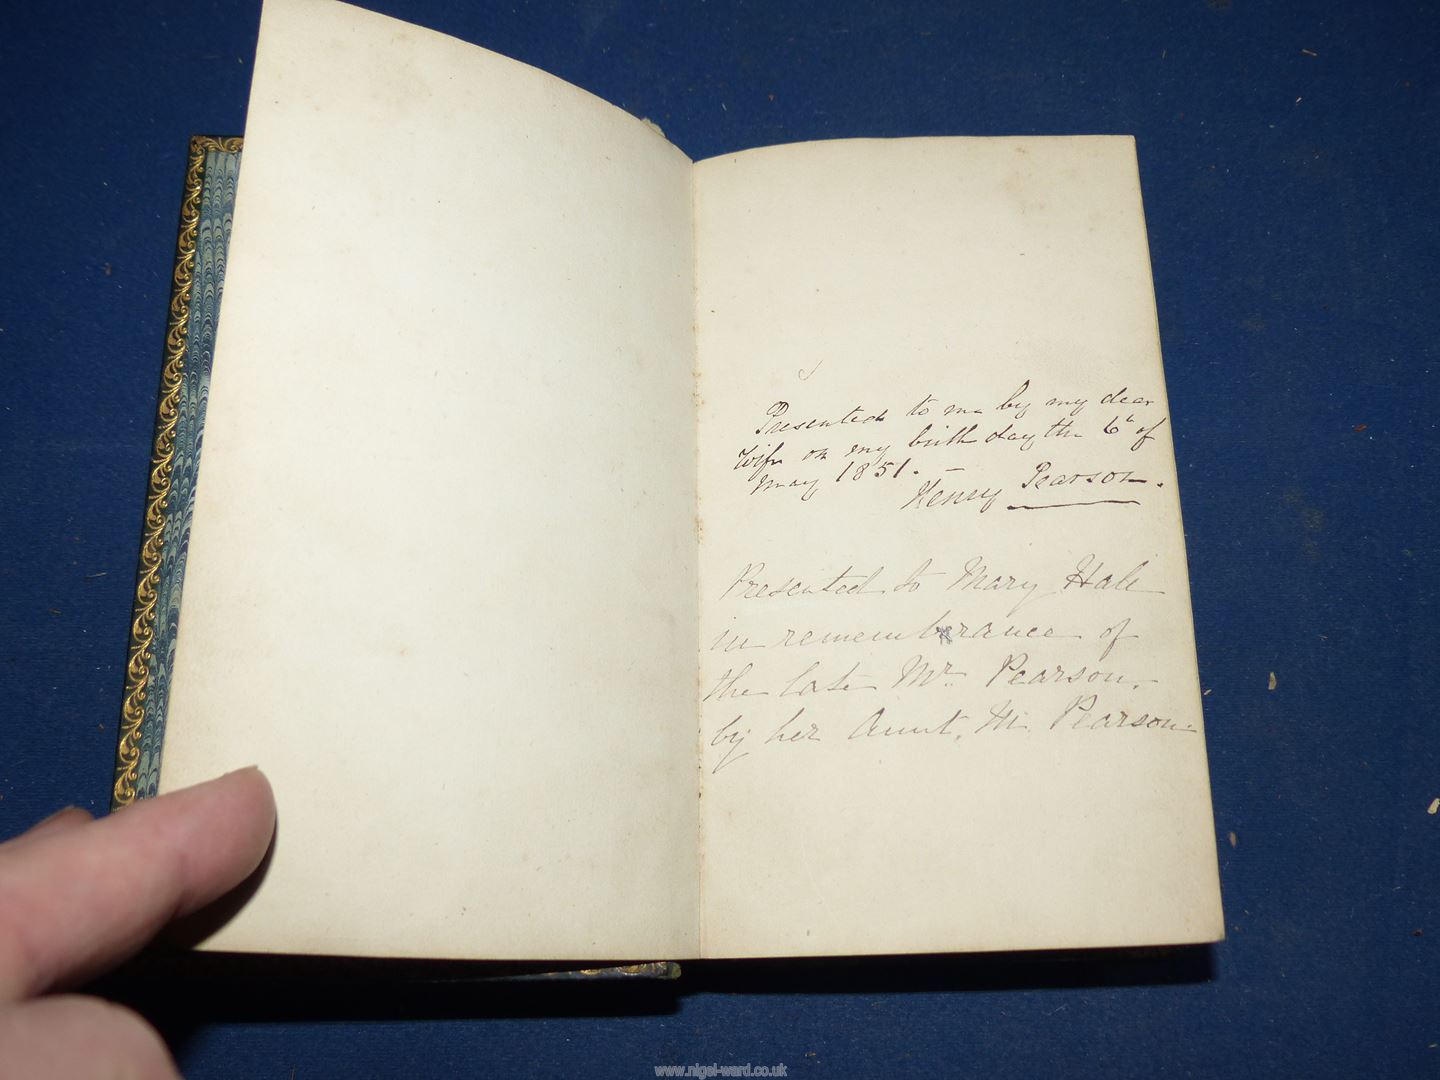 Presented to me by my dear
Wife on my birth day the 6th of
May 1851. –
Henry Pearson.
Presented to Mary Hale
in remembrance of
the late Mr. Pearson,
by her Aunt, M. Pearson
www.nigel-ward.co.uk